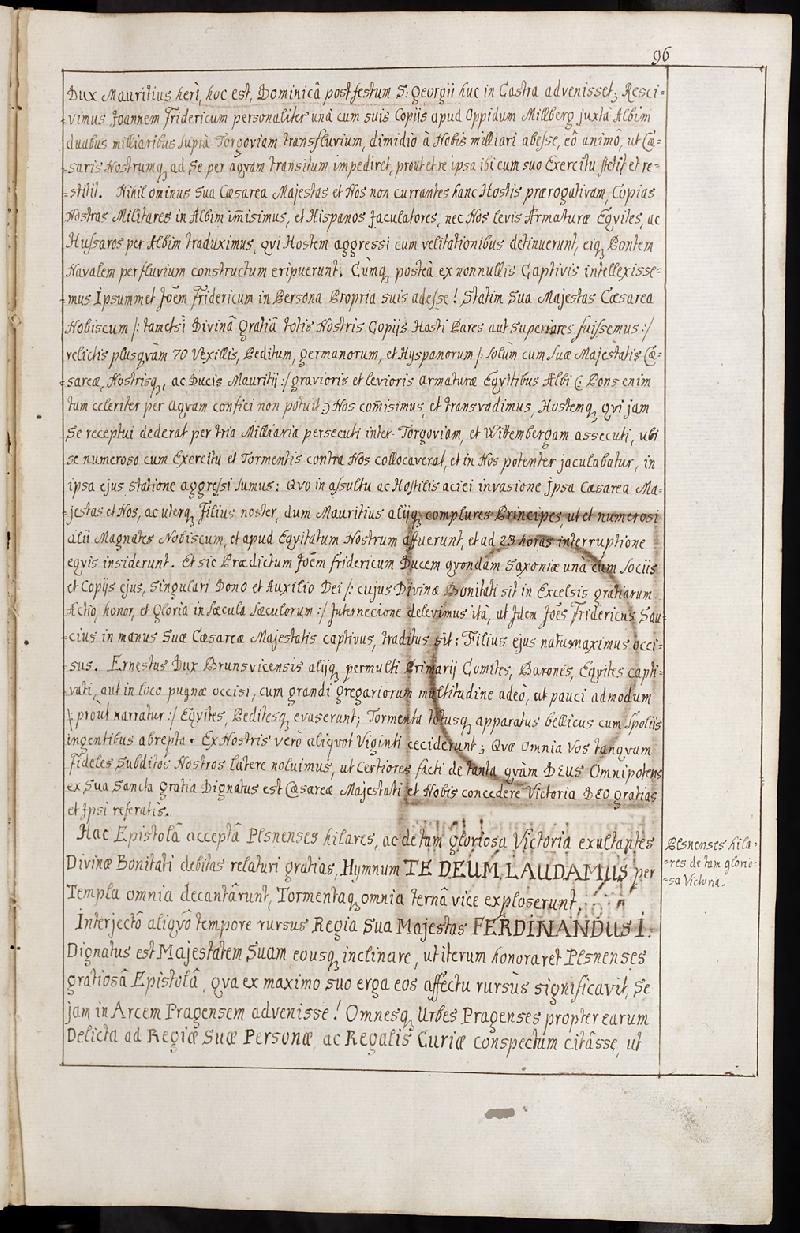 96
Dux Mauritius heri, hoc est, Dominicâ post festum S. Georgii huc in Castra advenisset; Resci-
vimus Joannem Fridericum personaliter unà cum suis Copijs apud Oppidum Millberg juxta Albim
duabus milliaribus suprà Torgoviam transfluvium, dimidio à Nobis milliari abesse, eô animô, ut Cæ-
saris Nostrumq, ad se per aqvam transitum impediret, prout et re ipsa ibi cum suo Exercitu stetit et re-
stitit. Nihil ominus Sua Cæsarea Majestas et Nos non currantes hanc Hostis prærogativam, Copias
Nostras Militares in Albim im̃isimus, et Hispanos Jaculatores, nec Nos levis Armaturæ Eqvites, ac
Hussaros per Albim traduximus, qvi Hostem aggressi eum velitationibus detinuerunt, eiq, Pontem
Navalem per fluvium constructum eripuerunt. Cũnq, posteà ex nonnullis Captivis intellexisse-
mus Ipsummet Joẽm Fridericum in Persona Propria suis adesse! Statim Sua Majestas Cæsarea
Nobiscum /: tametsi Divinâ gratiâ totis Nostris Copijs Hosti Pares aut Superiores fuissemus :/
relictis plusqvàm 70 Vexillis, Peditum, Germanorum, et Hyspanorum /: solùm cum Suæ Majestatis Cæ-
sareæ, Nostrisq, ac Ducis Mauritij :/ gravioris et levioris armaturæ Eqvitibus Albi (: Pons enim
tum celeriter per Aqvam confici non potuit :) Nos com̃isimus, et transvadimus, Hostemq, qvi jam
Se receptui dederat per tria Milliaria persecuti inter Torgoviam, et Wittembergam assecuti, ubi
se numeroso cum Exercitu et Tormentis contra Nos collocaverat, et in Nos potenter jaculabatur, in
ipsa ejus statione aggressi sumus: Qvo in assultu ac Hostilis aciei invasione Ipsa Cæsarea Ma-
jestas et Nos, ac uterq, Filius noster, dum Mauritius alijq, complures Principes, ut et numerosi
alii Magnates Nobiscum, et apud Eqvitatum Nostrum affuerunt, et ad 23 horas interruptione
eqvis insiderunt. Et sic Prædictum Joẽm Fridericum Ducem qvondam Saxoniæ una cum Sociis
et Copijs ejus, Singulari Dono et Auxilio Dei /: cujus Divinæ Bonitati sit in Excelsis gratiarum
Actio, honor, et gloria in Sæcula Sæculorum :/ Internecione delevimus ità, ut Idem Joẽs Fridericus Sau-
cius in manus Suæ Cæsareæ Majestatis captivus, traditus sit: Filius ejus natu maximus occi-
sus. Ernestus Dux Brunsvicensis alijq, permulti Primarij Comites, Barones, Eqvites capti-
vati, aut in loco pugnæ occisi, cum grandi gregariorum multitudine adeò, ut pauci admodum
/: prout narratur :/ Eqvites, Peditesq, evaserunt; Tormenta totusq, apparatus bellicus cum Spoliis
ingentibus abrepta. Ex Nostris verò aliqvot Viginti ceciderunt; Qvæ Omnia Vos tanqvam
Fideles Subditos Nostros latere noluimus, ut Certiores facti de tanta qvàm DEUS Omnipotens
ex Sua Sancta gratia Dignatus est Cæsareæ Majestati et Nobis concedere Victoria DEO gratias
et Ipsi referatis.
Hac Epistolâ acceptâ Plsnenses hilares, ac de tam gloriosa Victoria exultantes
Divinæ Bonitati debitas relaturi gratias, Hymnum TE DEUM LAUDAMUS per
Templa omnia decantârunt, Tormentaq, omnia ternâ vice exploserunt.
Plsnenses hila-
res de tam glorio-
sa Victoria.
Interjectô aliqvô tempore rursus Regia Sua Majestas FERDINANDUS I.
Dignatus est Majestatem Suam eousq, inclinare, ut iterum honoraret Plsnenses
gratiosâ Epistolâ, qva ex maximo suo erga eos affectu rursùs significavit, Se
jam in Arcem Pragensem advenisse! Omnesq, Urbes Pragenses propter earum
Delicta ad Regiæ Suæ Personæ, ac Regalis Curiæ conspectum citâsse, ut